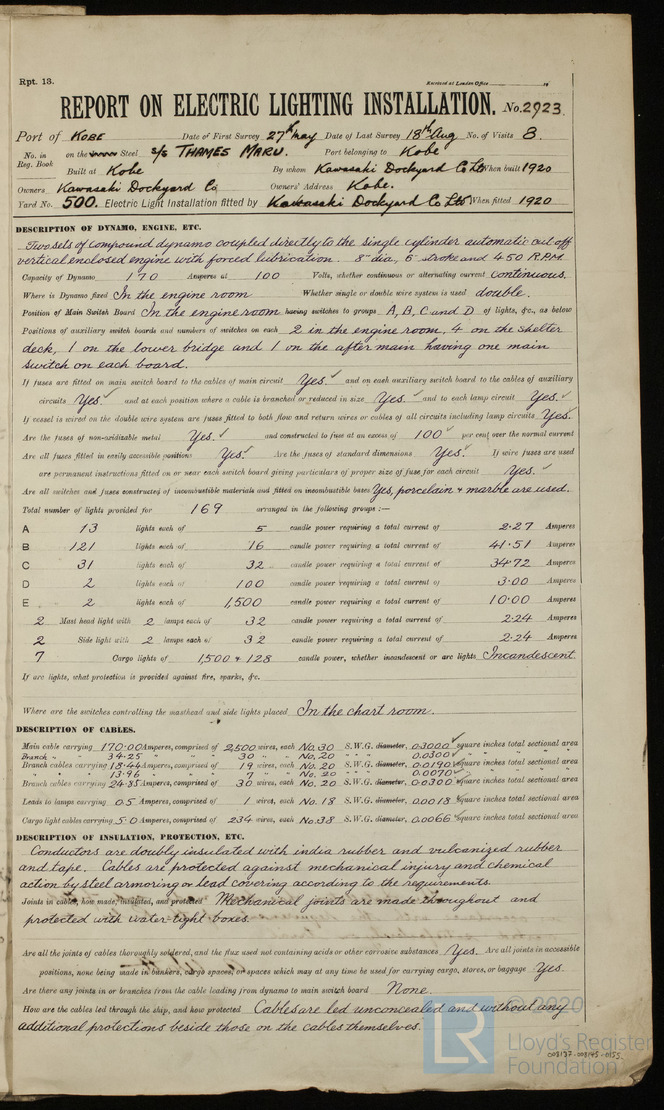 Rpt. 13.
Received at London Office 19
REPORT ON ELECTRIC LIGHTING INSTALLATION. No. 2923.
Port of KOBE Date of First Survey 27th May Date of Last Survey 18th Aug No. of Visits 8.
No. in Reg. Book on the Steel S/S THAMES MARU. Port belonging to Kobe
Built at Kobe By whom Kawasaki Dockyard Co Ltd When built 1920
Owners Kawasaki Dockyard Co Owners' Address Kobe.
Yard No. 500. Electric Light Installation fitted by Kawasaki Dockyard Co Ltd When fitted 1920
DESCRIPTION OF DYNAMO, ENGINE, ETC.
Two sets of compound dynamo coupled directly to the single cylinder automatic cut off
vertical enclosed engine with forced lubrication. 8" dia., 6" stroke and 450 R.P.M.
Capacity of Dynamo 170 Amperes at 100 Volts, whether continuous or alternating current continuous.
Where is Dynamo fixed In the engine room Whether single or double wire system is used double.
Position of Main Switch Board In the engine room having switches to groups A, B, C and D of lights, &c., as below
Positions of auxiliary switch boards and numbers of switches on each 2 in the engine room, 4 on the shelter
deck, 1 on the lower bridge and 1 on the after main having one main
switch on each board.
If fuses are fitted on main switch board to the cables of main circuit Yes. ✓ and on each auxiliary switch board to the cables of auxiliary
circuits Yes. ✓ and at each position where a cable is branched or reduced in size Yes. ✓ and to each lamp circuit Yes. ✓
If vessel is wired on the double wire system are fuses fitted to both flow and return wires or cables of all circuits including lamp circuits Yes.
Are the fuses of non-oxidizable metal Yes. ✓ and constructed to fuse at an excess of 100 ✓ per cent over the normal current
Are all fuses fitted in easily accessible positions Yes. ✓ Are the fuses of standard dimensions Yes. ✓ If wire fuses are used
are permanent instructions fitted on or near each switch board giving particulars of proper size of fuse for each circuit Yes. ✓
Are all switches and fuses constructed of incombustible materials and fitted on incombustible bases Yes, porcelain & marble are used.
Total number of lights provided for 169 arranged in the following groups :—
A 13 lights each of 5 candle power requiring a total current of 2.27 Amperes
B 121 lights each of 16 candle power requiring a total current of 41.51 Amperes
C 31 lights each of 32 candle power requiring a total current of 34.72 Amperes
D 2 lights each of 100 candle power requiring a total current of 3.00 Amperes
E 2 lights each of 1,500 candle power requiring a total current of 10.00 Amperes
2 Mast head light with 2 lamps each of 32 candle power requiring a total current of 2.24 Amperes
2 Side light with 2 lamps each of 32 candle power requiring a total current of 2.24 Amperes
7 Cargo lights of 1,500 & 128 candle power, whether incandescent or arc lights Incandescent
If arc lights, what protection is provided against fire, sparks, &c.
Where are the switches controlling the masthead and side lights placed In the chart room.
DESCRIPTION OF CABLES.
Main cable carrying 170.00 Amperes, comprised of 2500 wires, each No. 30 S.W.G. diameter, 0.3000 square inches total sectional area
Branch " " 34.25 " " " 30 " No. 20 " " " 0.0300 " " " "
Branch cables carrying 18.46 Amperes, comprised of 19 wires, each No. 20 S.W.G. diameter, 0.0190 square inches total sectional area
" " " 13.96 " " " 7 " No. 20 " " " 0.0070 " " " "
Branch cables carrying 24.85 Amperes, comprised of 30 wires, each No. 20 S.W.G. diameter, 0.0300 square inches total sectional area
Leads to lamps carrying 0.5 Amperes, comprised of 1 wires, each No. 18 S.W.G. diameter, 0.0018 square inches total sectional area
Cargo light cables carrying 5.0 Amperes, comprised of 234 wires, each No. 38 S.W.G. diameter, 0.0066 square inches total sectional area
DESCRIPTION OF INSULATION, PROTECTION, ETC.
Conductors are doubly insulated with india rubber and vulcanized rubber
and tape. Cables are protected against mechanical injury and chemical
action by steel armoring or lead covering according to the requirements.
Joints in cables, how made, insulated, and protected Mechanical joints are made throughout and
protected with water-tight boxes.
Are all the joints of cables thoroughly soldered, and the flux used not containing acids or other corrosive substances Yes. Are all joints in accessible
positions, none being made in bunkers, cargo spaces, or spaces which may at any time be used for carrying cargo, stores, or baggage Yes.
Are there any joints in or branches from the cable leading from dynamo to main switch board None.
How are the cables led through the ship, and how protected Cables are led unconcealed and without any
additional protections beside those on the cables themselves.
© 2020
LR
Lloyd's Register
Foundation
008137-008145-0155